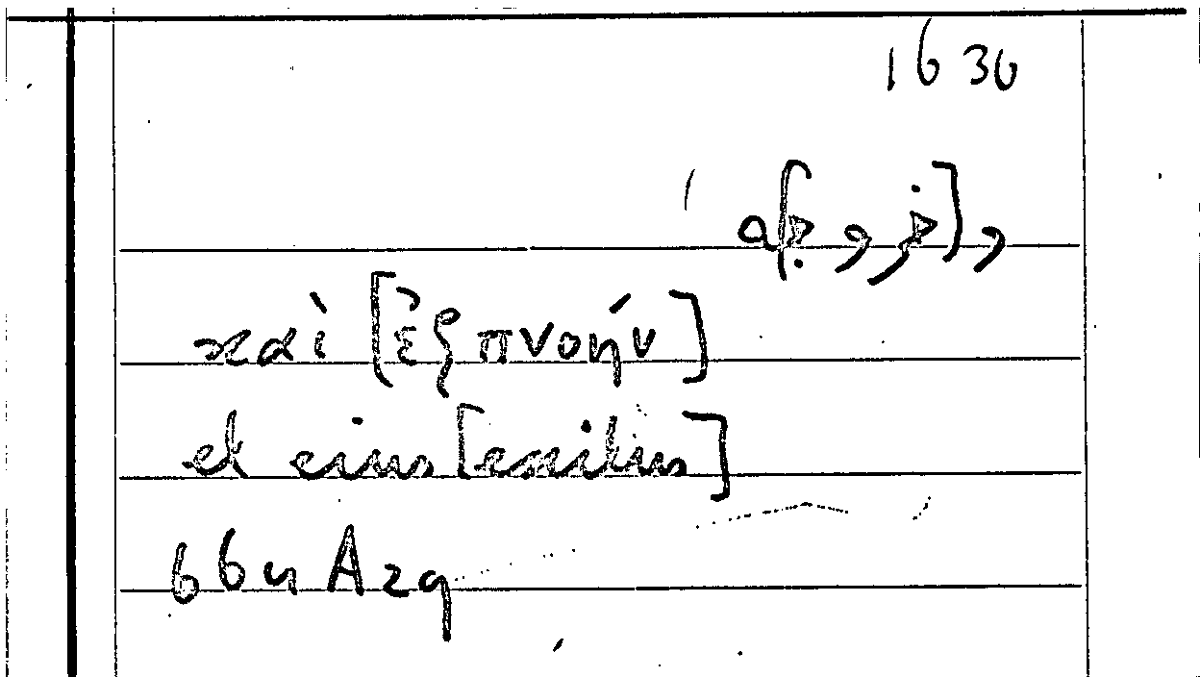 1630
καὶ [ἐξπνοήν]
et eius [exitus]
66u A29